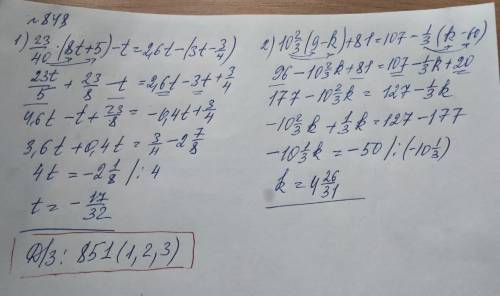 №848
1) 23/40 · (8t+5) - t = 2,6t - (3t - 3/4)
23t/5 + 23/8 - t = 2,6t - 3t + 3/4
4,6t - t + 23/8 = -0,4t + 3/4
3,6t + 0,4t = 3/4 - 2 7/8
4t = -2 1/8 /: 4
t = - 17/32
Д/з: 851(1,2,3)
2) 10 2/3 (9-k) + 81 = 107 - 1/3 (k - 60)
96 - 10 2/3 k + 81 = 107 - 1/3 k + 20
177 - 10 2/3 k = 127 - 1/3 k
-10 2/3 k + 1/3 k = 127 - 177
-10 1/3 k = -50 /: (-10 1/3)
k = 4 26/31